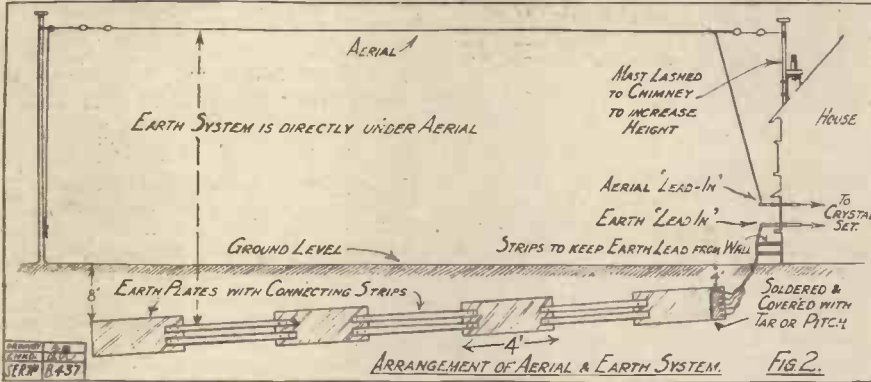 AERIAL
MAST LASHED
TO CHIMNEY
TO INCREASE
HEIGHT
HOUSE
EARTH SYSTEM IS DIRECTLY UNDER AERIAL
AERIAL 'LEAD-IN'
EARTH 'LEAD IN'
TO
CRYSTAL
SET.
GROUND LEVEL
STRIPS TO KEEP EARTH LEAD FROM WALL
8'
EARTH PLATES WITH CONNECTING STRIPS
4'
SOLDERED &
COVERED WITH
TAR OR PITCH
4'
ARRANGEMENT OF AERIAL & EARTH SYSTEM.
FIG 2.
SER Nº B.437